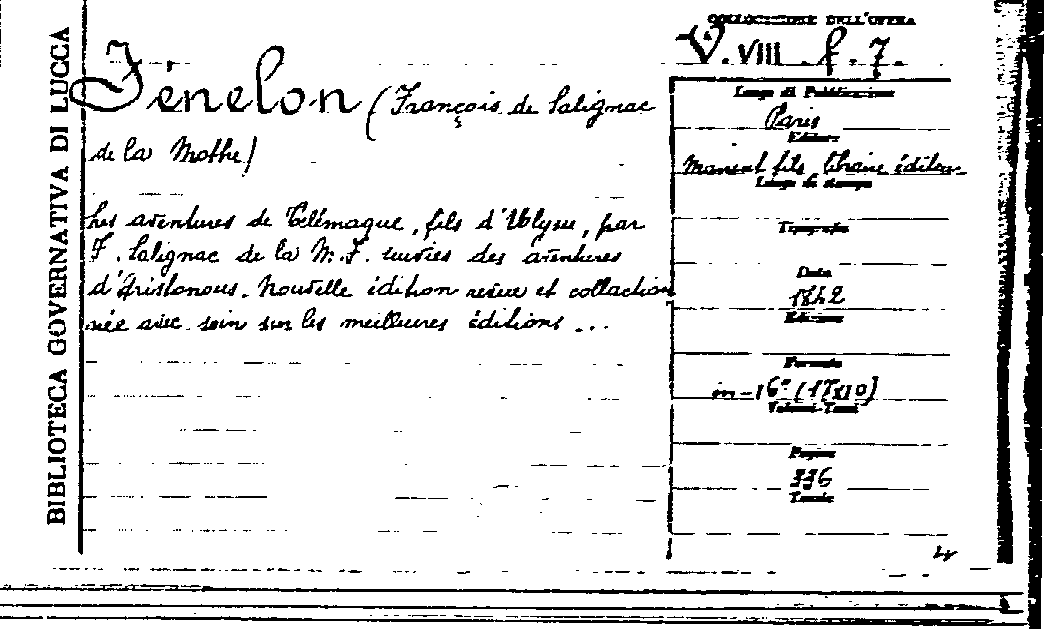 BIBLIOTECA GOVERNATIVA DI LUCCA
COLLOCAZIONE DELL'OPERA
V. VIII . f . 7 .
Fénelon (François de Salignac
de la Mothe)
Les aventures de Télémaque, fils d'Ulysse, par
F. Salignac de la M. F. suivies des aventures
d'Aristonous. Nouvelle édition revue et collaction
née avec soin sur les meilleures éditions ...
Luogo di Pubblicazione
Paris
Editore
fils libraire éditeur
Luogo di stampa
Tipografia
Data
1842
Edizione
Formato
in-16° (17x10)
Volumi-Tomi
Pagine
336
Tavole